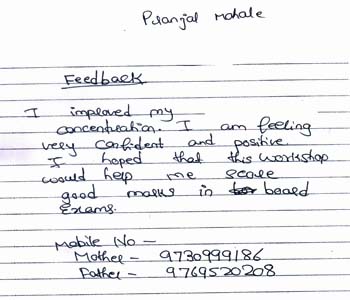 Pranjal Mohale
Feedback
I improved my
concentration. I am feeling
very confident and positive
I hoped that this workshop
would help me score
good marks in board
Exams.
Mobile No -
Mother - 9730999186
Father - 9769520208